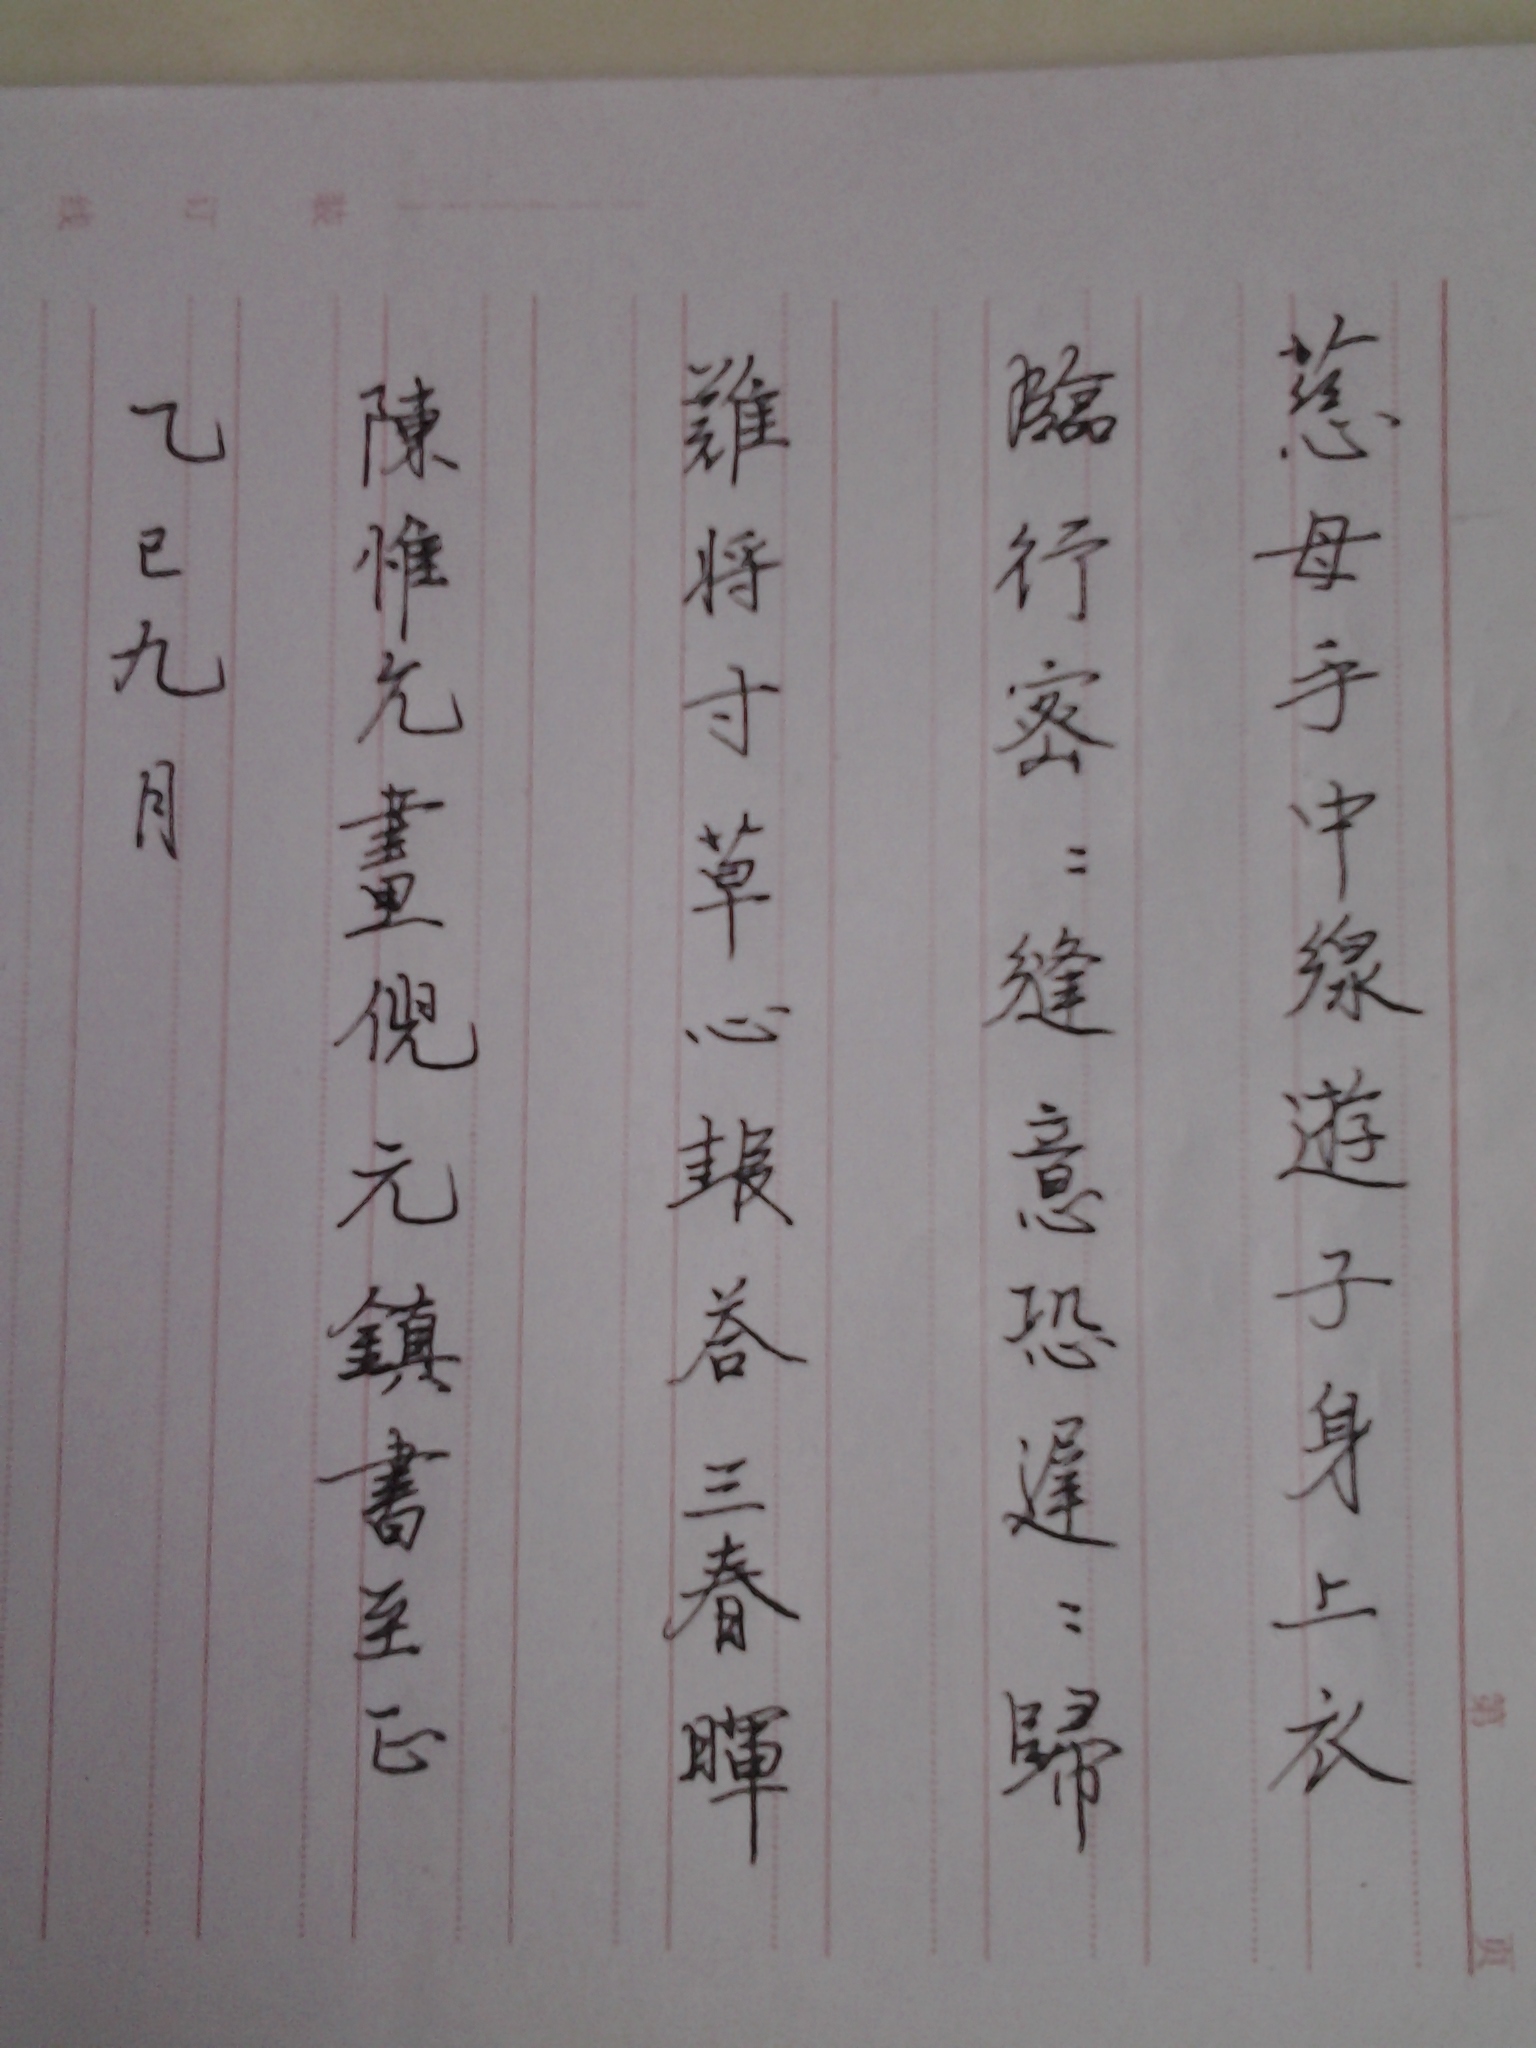 慈母手中線遊子身上衣
臨行密：縫意恐遲：歸
難將寸草心報荅三春暉
陳惟允畫倪元鎮書至正
乙巳九月
裝
訂
线
第
页